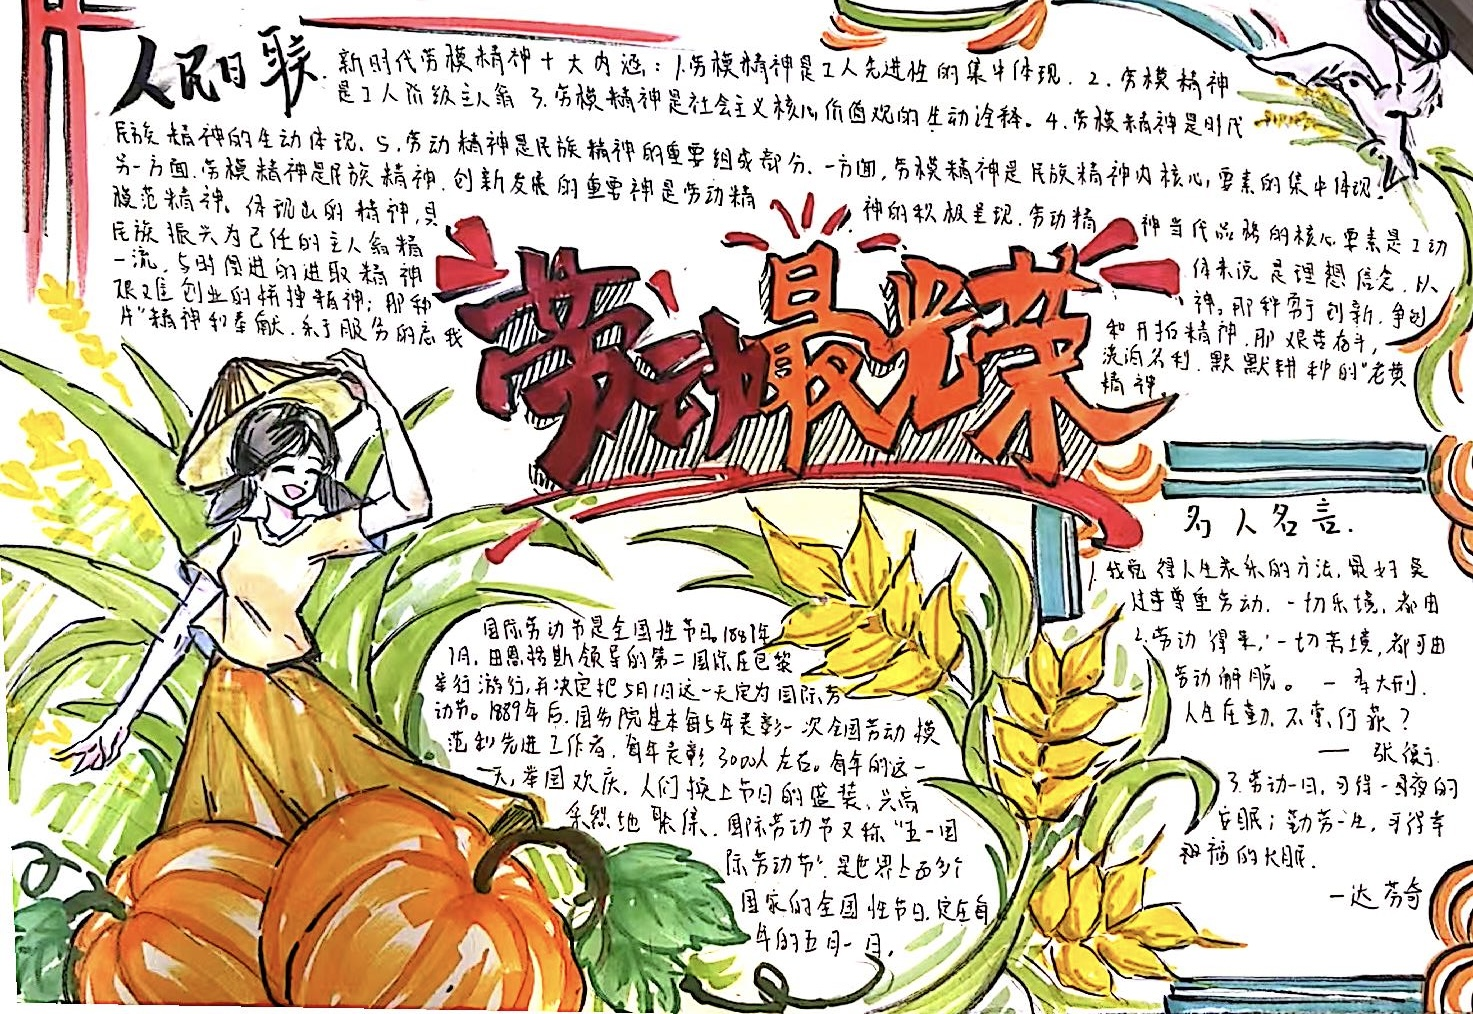 人民日
新时代劳模精神十大内涵：1.劳模精神是工人先进性的集中体现. 2. 劳模精神
是工人阶级主人翁 3.劳模精神是社会主义核心价值观的生动诠释。4.劳模精神是时代
民族精神的生动体现. 5.劳动精神是民族精神的重要组成部分. 一方面,劳模精神是民族精神内核心,要素的集中体现;
另一方面.劳模精神是民族精神.创新发展的重要神是劳动精 神的积极呈现.劳动精 神当代品格的核心要素是工动
模范精神。体现出的精神,具 体来说是理想信念.以
民族振兴为己任的主人翁精 神。那种勇于创新.争创
一流.与时俱进的进取精神 和开拓精神.那艰苦奋斗,
艰难创业的拼搏精神;那种 淡泊名利.默默耕种的"老黄
牛"精神和奉献.乐于服务的忘我 精神
劳动最光荣
国际劳动节是全国性节日。1889年
7月.由恩格斯领导的第二国际在巴黎
举行游行,并决定把5月1日这一天定为国际劳
动节。1989年后.国务院基本每5年表彰一次全国劳动模
范和先进工作者.每年表彰3000人左右。每年的这一
天,举国欢庆.人们换上节日的盛装.兴高
采烈地聚集.国际劳动节又称"五一国
际劳动节".是世界上多个
国家的全国性节日.定在每
年的五月一日.
名人名言.
1.我觉得人生求乐的方法,最好莫
过于尊重劳动.一切乐境,都由
2.劳动得来,一切苦境,都可由
劳动解脱。 —李大钊.
人生在勤.不索何获?
— 张衡.
3.劳动一日,可得一夜的
安眠;勤劳一生,可得幸
福的长眠.
—达芬奇